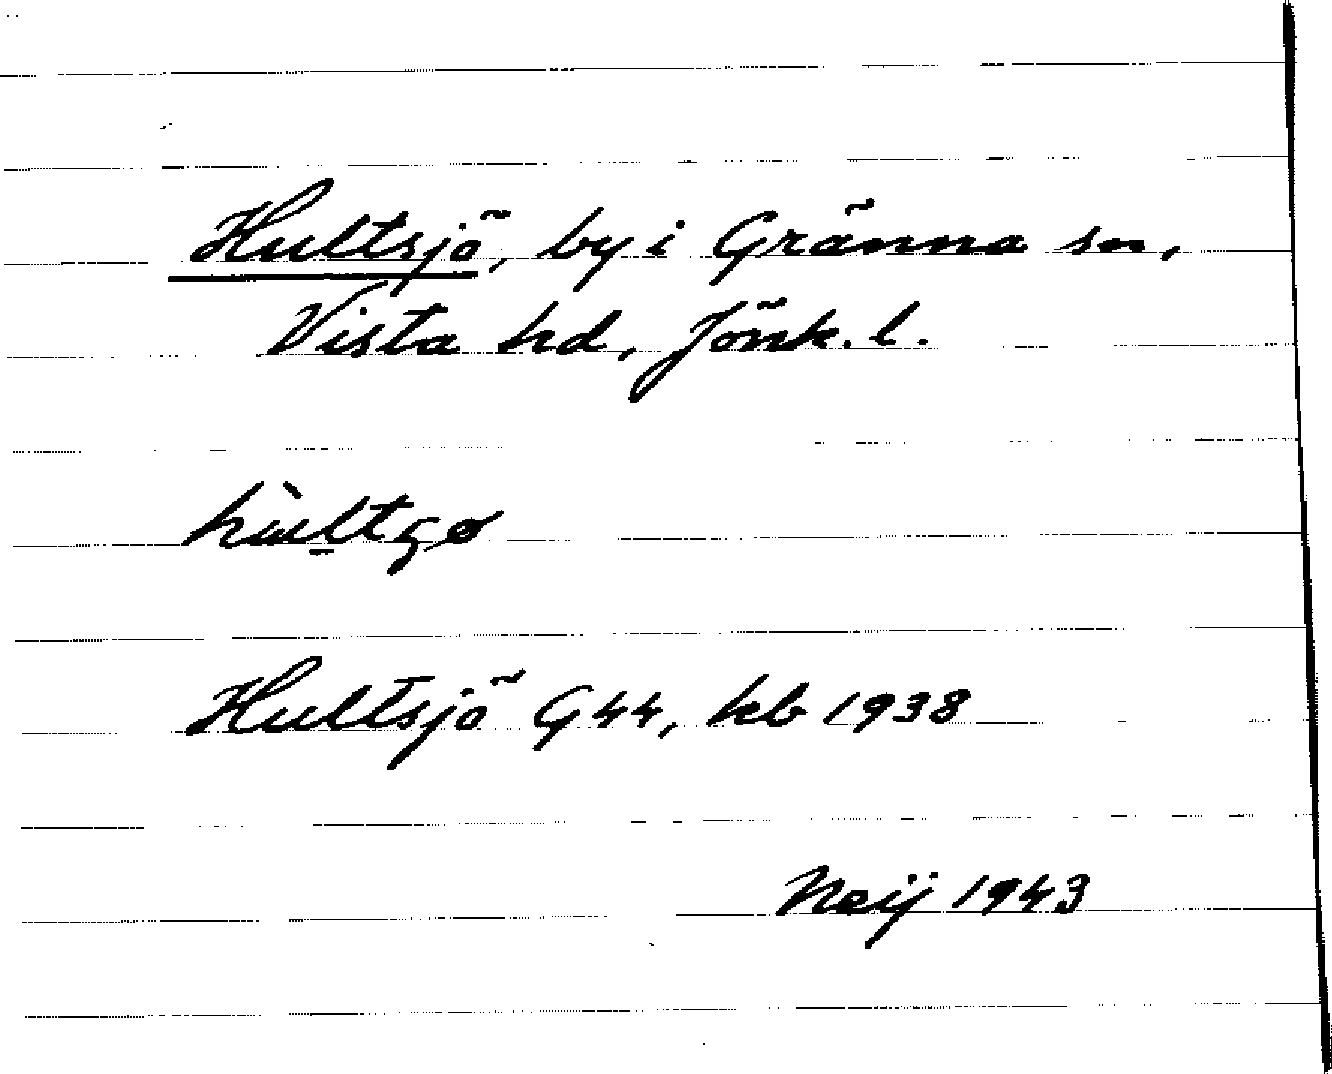 Hultsjö, by i Gränna sn,
Vista hd, Jönk. l.
hùltʒø
Hultsjö G 44, kb 1938
Neij 1943